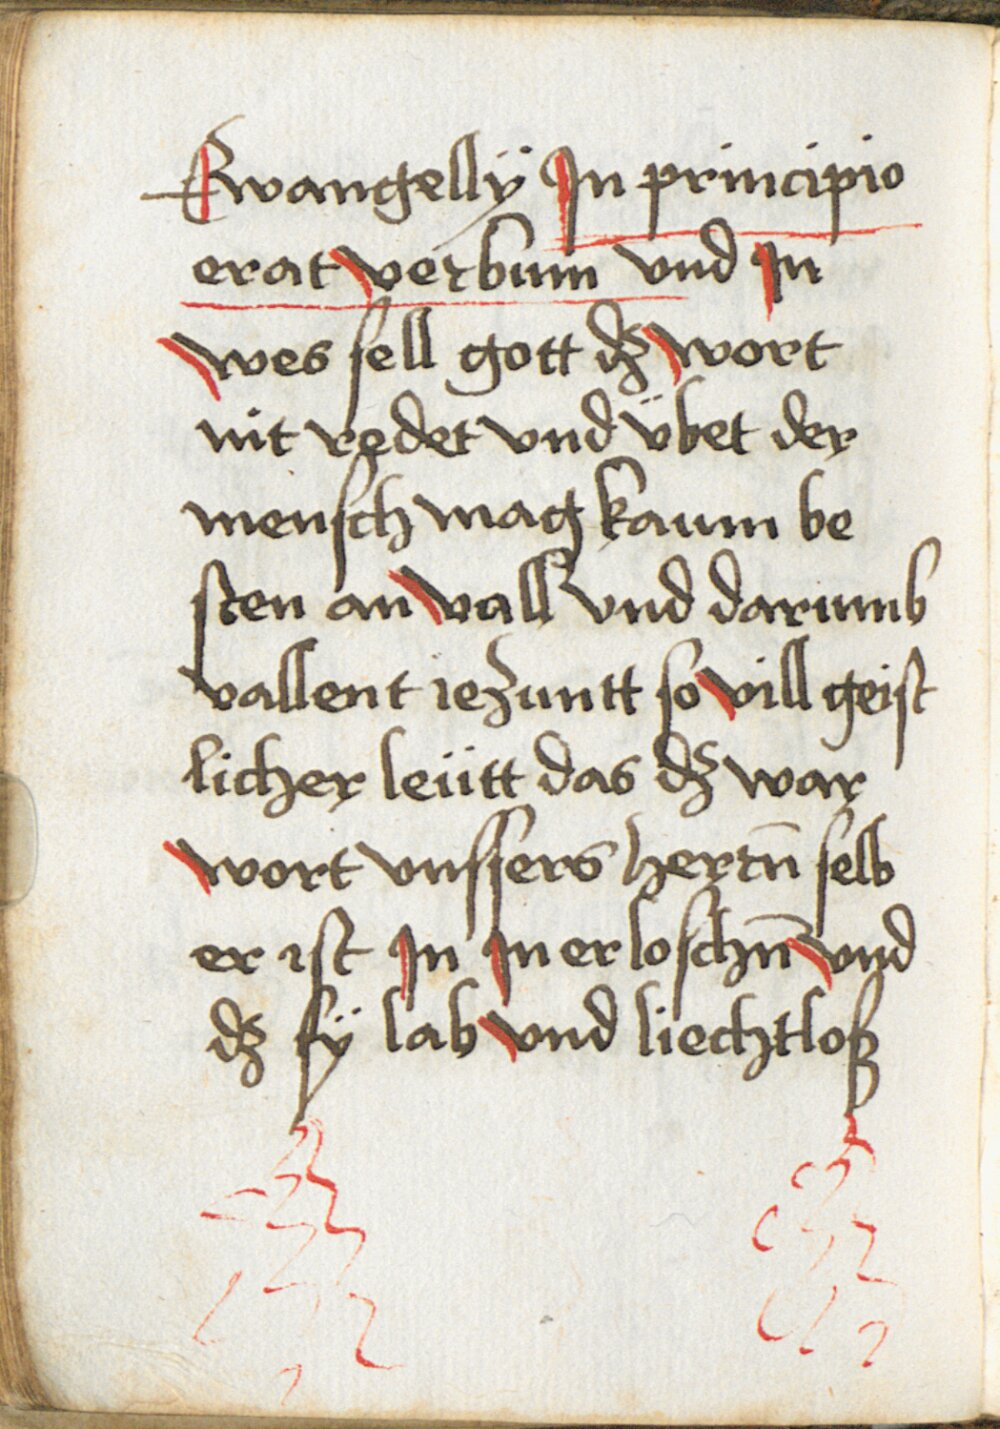 Ewangellÿ In principio
erat verbum vnd In
wes sell gott dz wort
nit redet vnd übet der
mensch mag kaum be
sten an vall vnd darumb
vallent iezuntt so vill geist
licher leütt das dz war
wort vnssers herrn̄ selb
er ist In In erloschn̄ vnd
dz sÿ lab vnd liechtloß